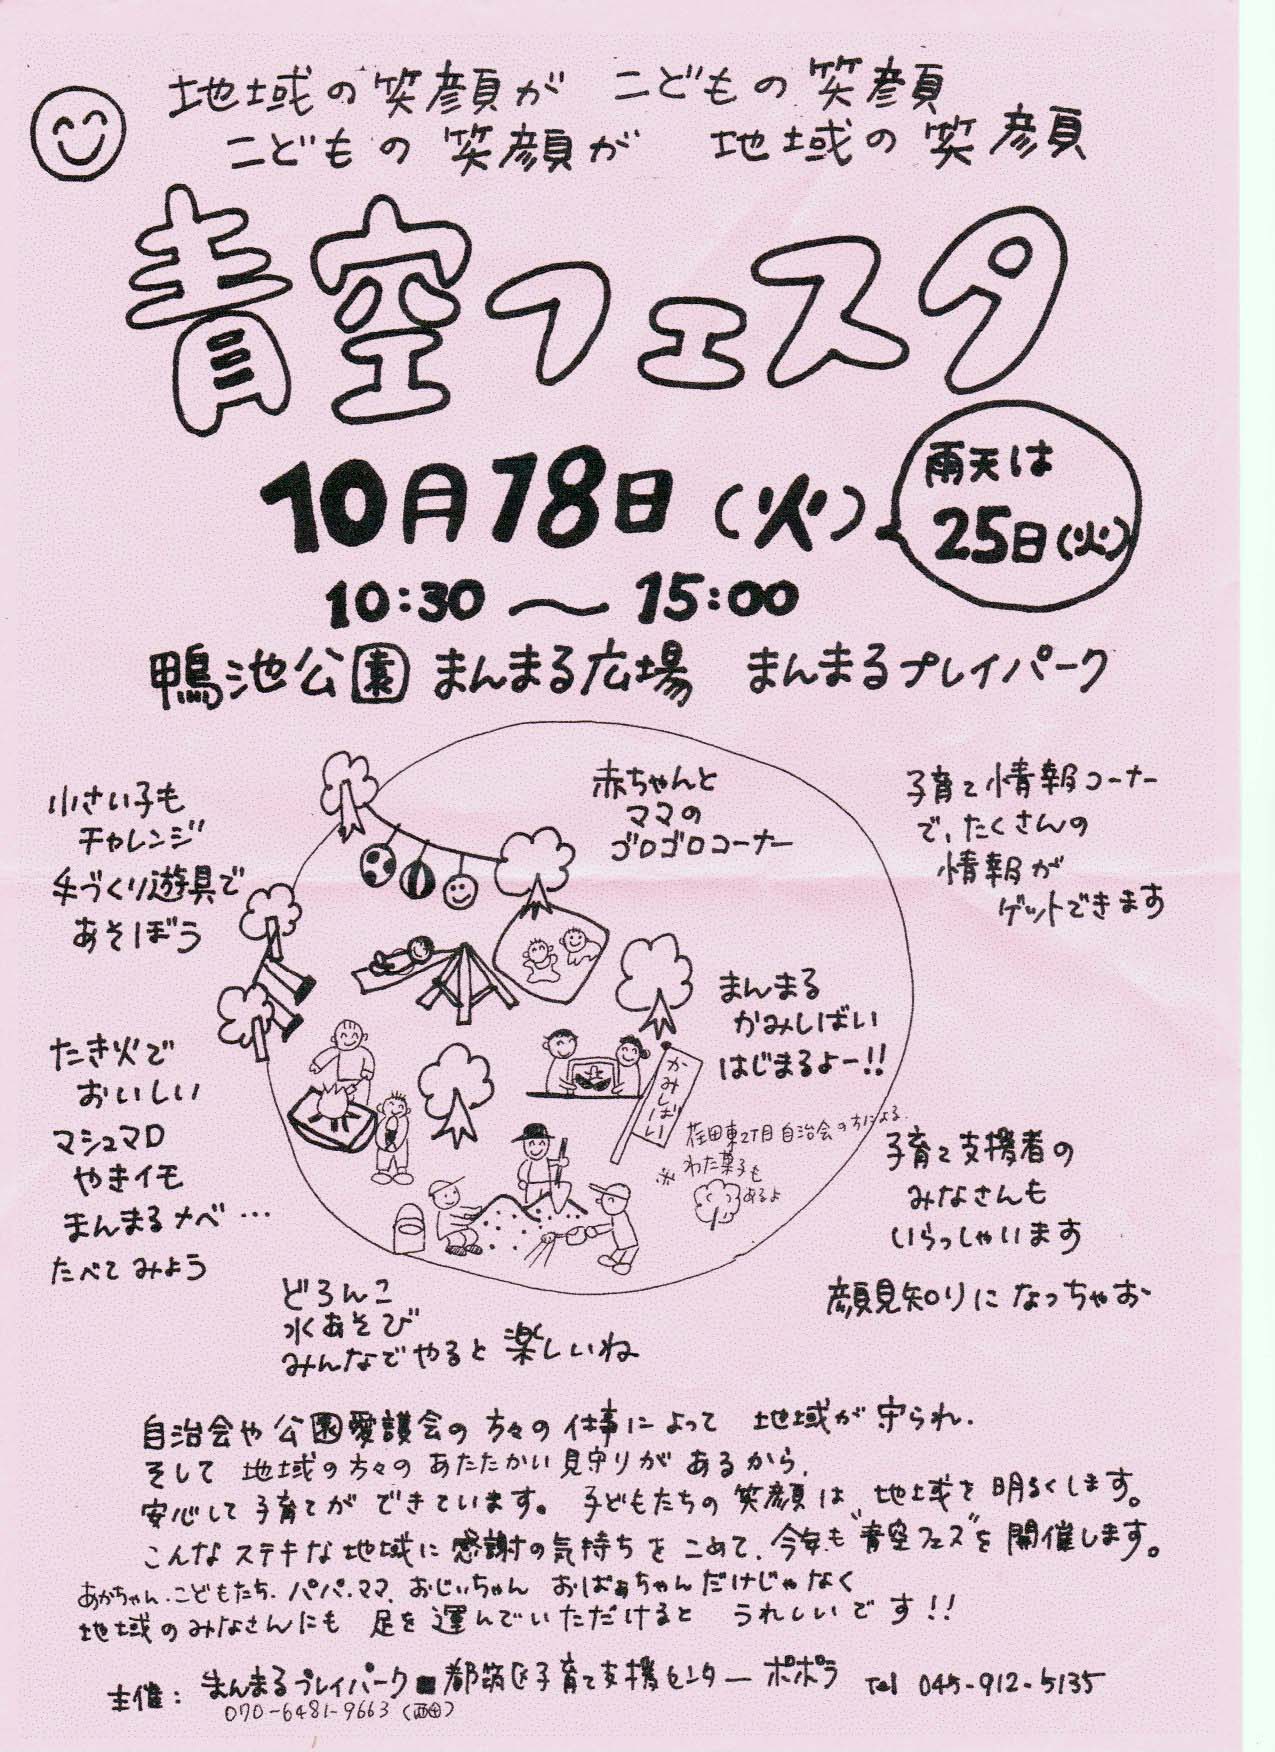 地域の笑顔が こどもの笑顔
こどもの笑顔が 地域の笑顔
青空フェスタ
10月18日(火)
雨天は
25日(火)
10:30〜15:00
鴨池公園 まんまる広場 まんまるプレイパーク
小さい子も
チャレンジ
手づくり遊具で
あそぼう
赤ちゃんと
ママの
ゴロゴロコーナー
子育て情報コーナー
で、たくさんの
情報が
ゲットできます
まんまる
かみしばい
はじまるよー!!
かみしばい
たき火で
おいしい
マシュマロ
やきイモ
まんまるナベ…
たべてみよう
荏田東2丁目自治会の方による
※わた菓子も
あるよ
子育て支援者の
みなさんも
いらっしゃいます
顔見知りになっちゃお
どろんこ
水あそび
みんなでやると楽しいね
自治会や公園愛護会の方々の仕事によって 地域が守られ、
そして 地域の方々の あたたかい見守りが あるから、
安心して子育てが できています。 子どもたちの笑顔は、地域を明るくします。
こんなステキな地域に感謝の気持ちをこめて、今年も"青空フェス"を開催します。
あかちゃん、こどもたち、パパ・ママ、おじいちゃん おばぁちゃんだけじゃなく
地域のみなさんにも 足を運んでいただけると うれしいです!!
主催: まんまるプレイパーク 都筑区子育て支援センター ポポラ Tel 045-912-5135
070-6481-9663(西田)